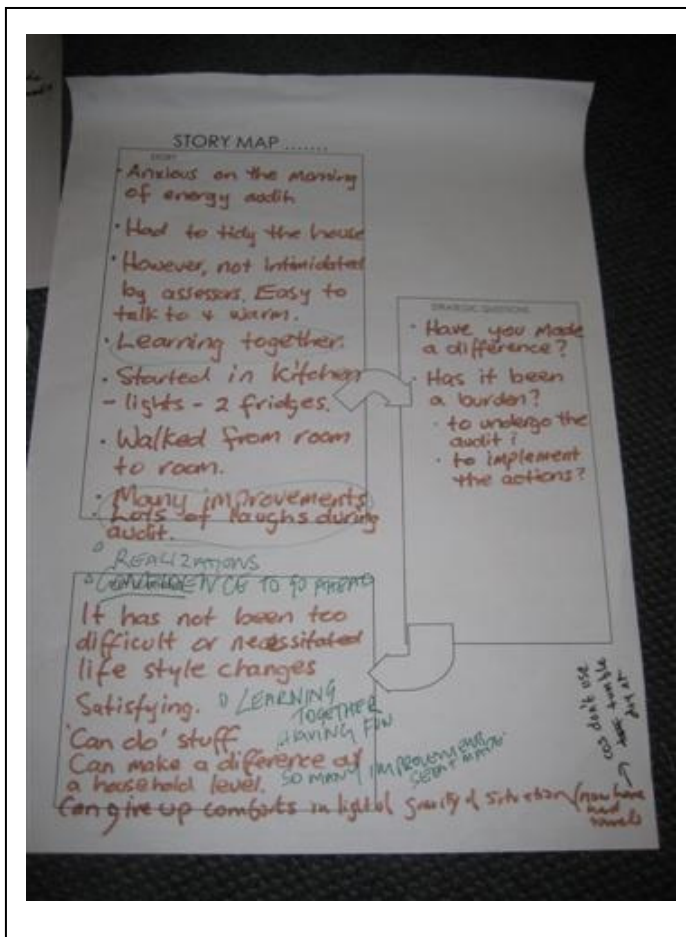 STORY MAP .......
STORY
• Anxious on the morning
of energy audit
• Had to tidy the house
• However, not intimidated
by assessors. Easy to
talk to & warm.
• Learning together.
• Started in kitchen
- lights - 2 fridges.
• Walked from room
to room.
• Many improvements
• Lots of laughs during
audit.
REALIZATIONS
CONFIDENCE TO GO AHEAD
STRATEGIC QUESTIONS
• Have you made
a difference?
• Has it been
a burden?
• to undergo the
audit?
• to implement
the actions?
It has not been too
difficult or necessitated
life style changes
Satisfying.
LEARNING
TOGETHER
HAVING FUN
'Can do' stuff
Can make a difference at
a household level.
SO MANY IMPROVEMENTS
Can give up comforts in light of gravity of situation (now have
hard
towels
cos don't use
tumble